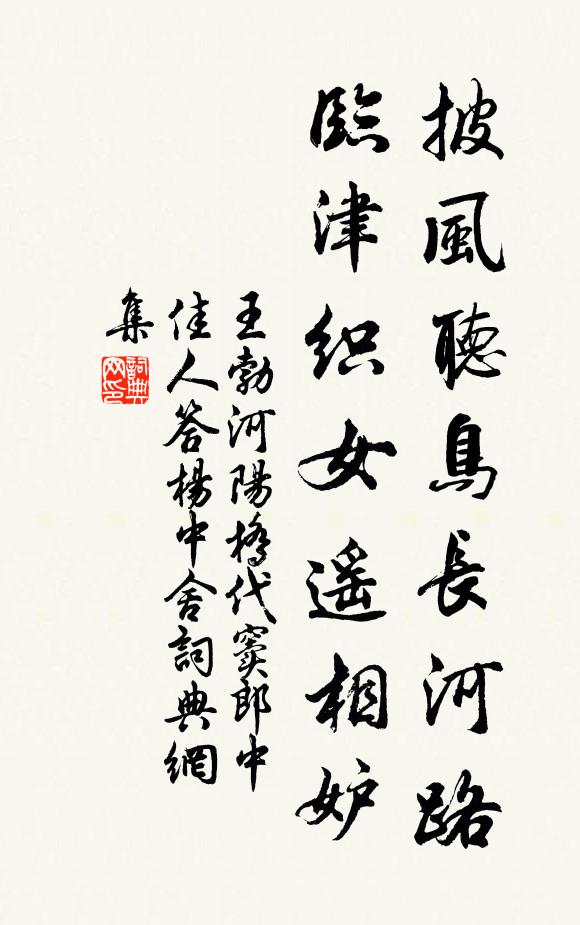 披風聽鳥長河路
臨津织女遥相妒
王勃河陽橋代竇郎中
佳人答楊中舍詞典網
集
詞典
网印